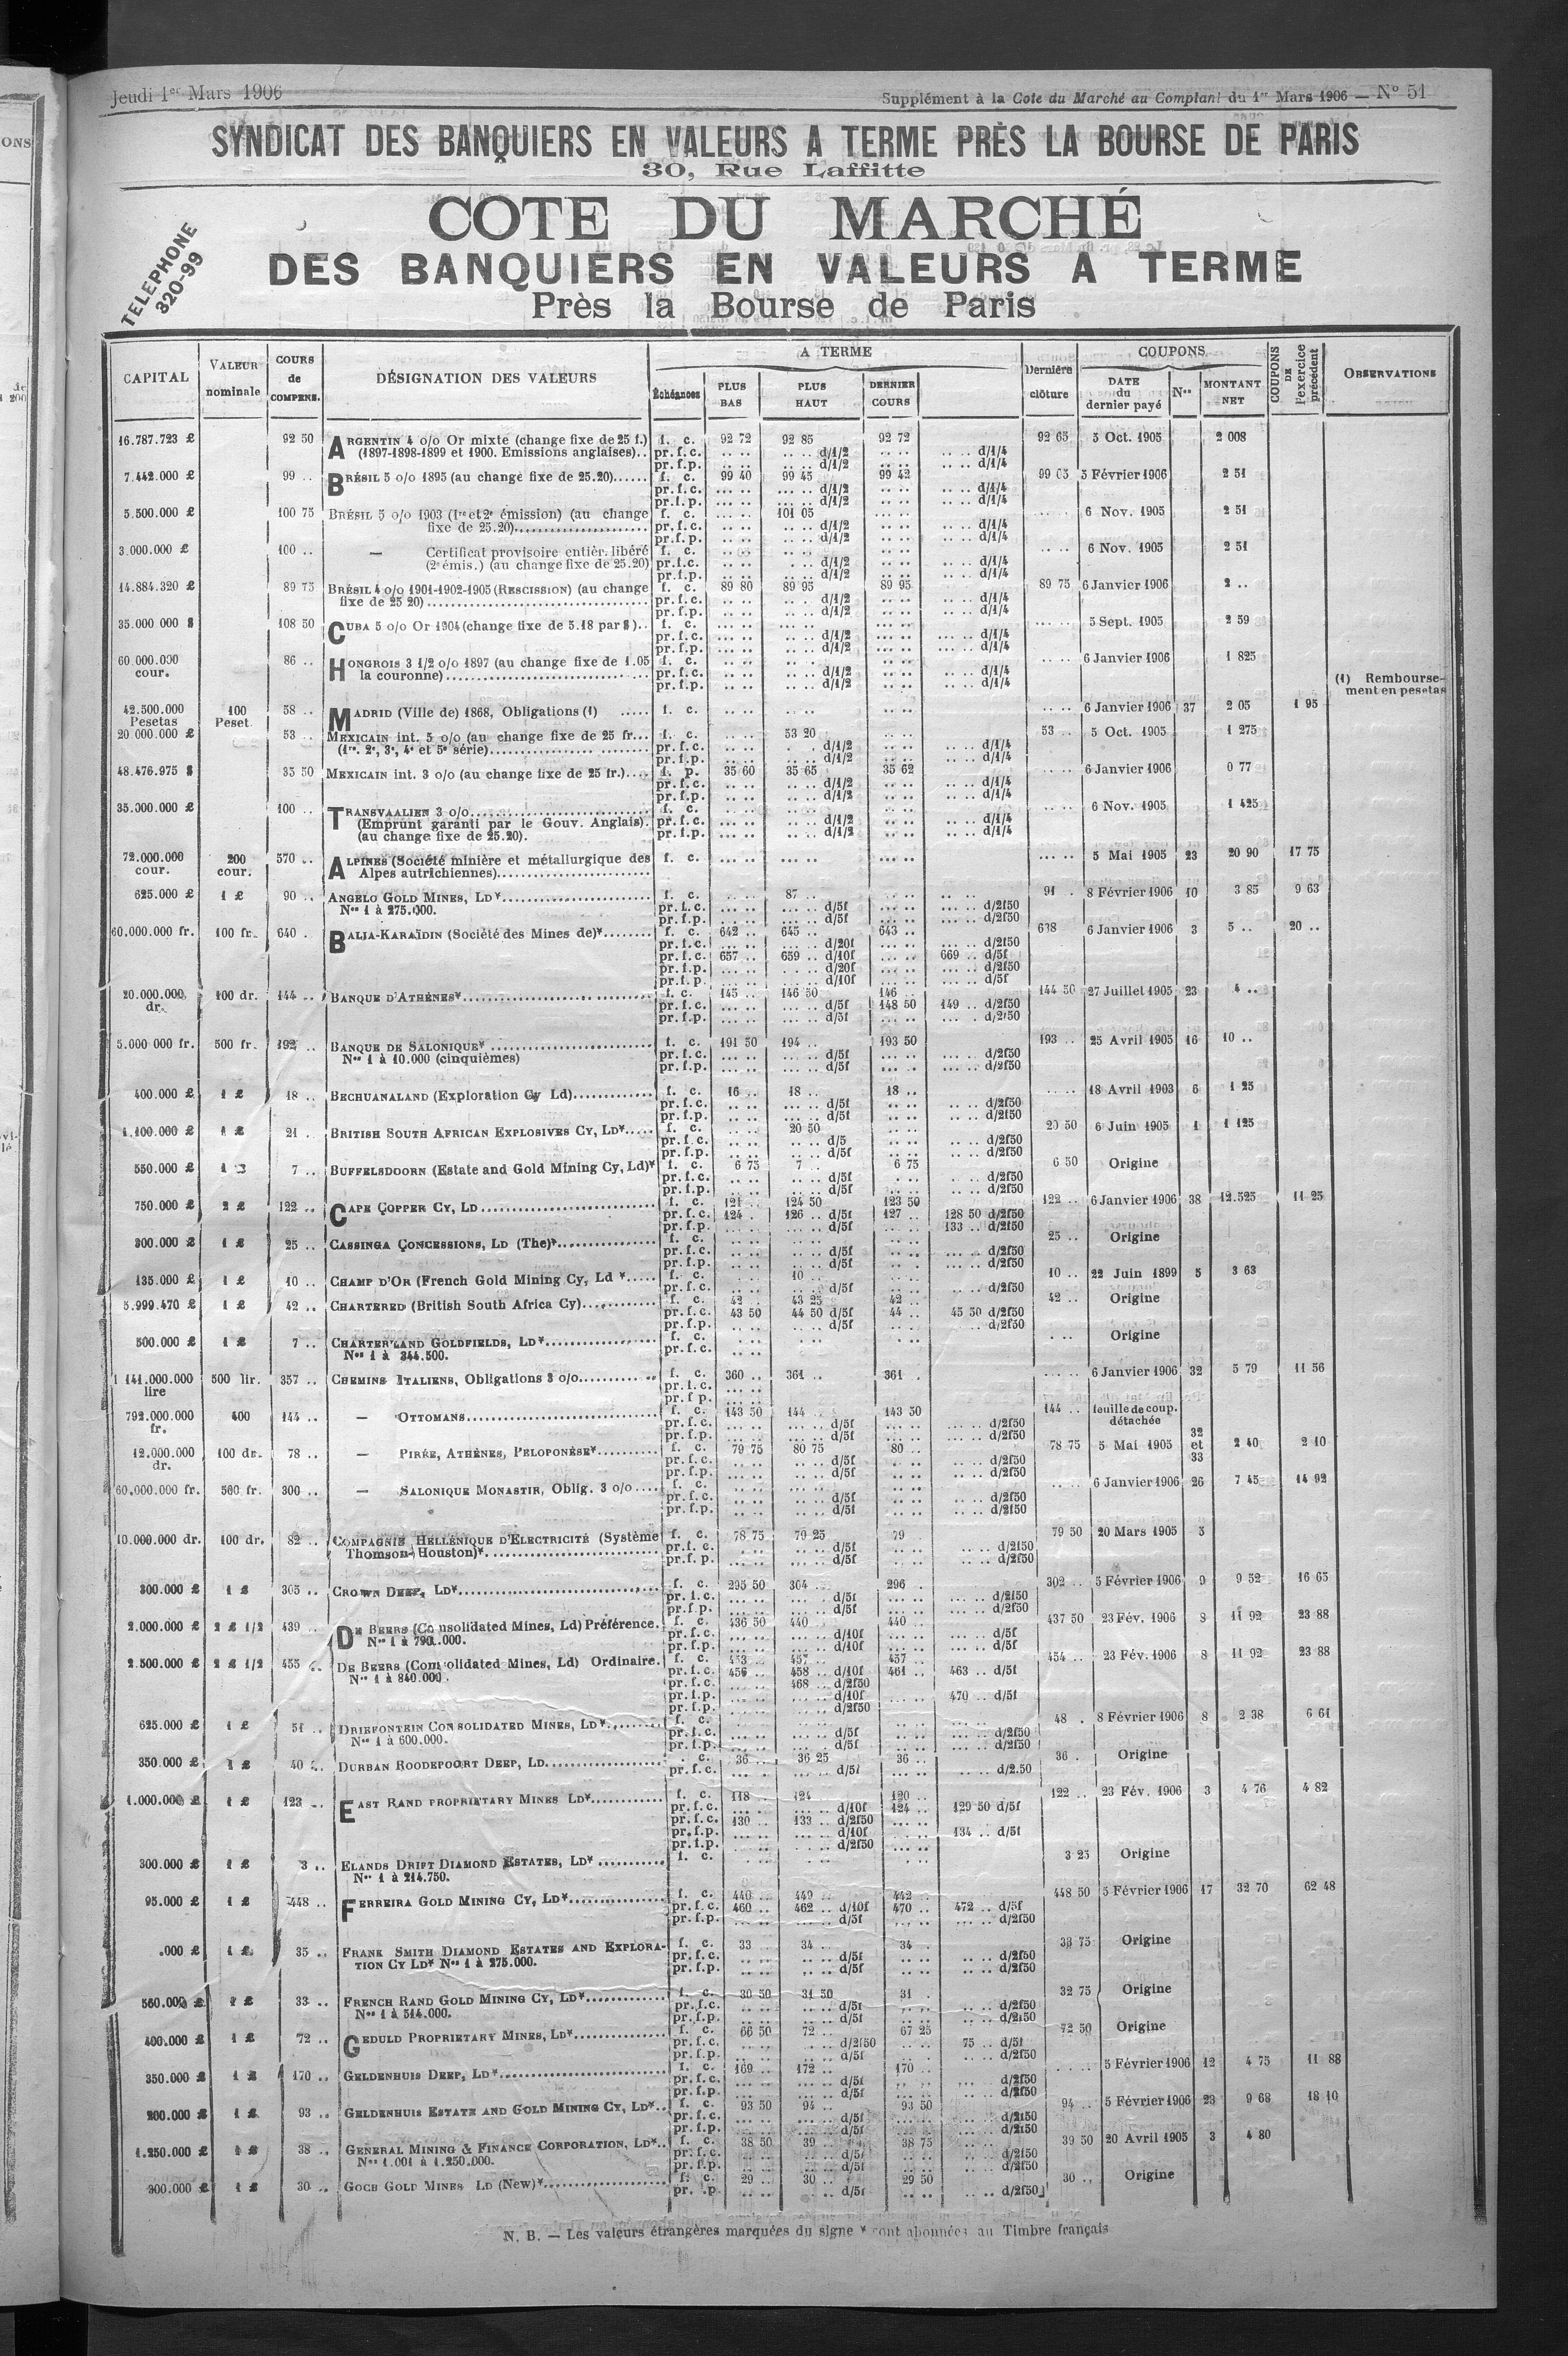 Jeudi 1er Mars 1906
Supplément à la Cote du Marché au Comptant du 1er Mars 1906 — N° 51
SYNDICAT DES BANQUIERS EN VALEURS A TERME PRÈS LA BOURSE DE PARIS
30, Rue Laffitte
TELEPHONE
320-99
COTE DU MARCHÉ
DES BANQUIERS EN VALEURS A TERME
Près la Bourse de Paris
CAPITAL VALEUR nominale COURS de COMPENS. DÉSIGNATION DES VALEURS A TERME Échéances PLUS BAS PLUS HAUT DERNIER COURS Dernière clôture COUPONS DATE du dernier payé Nos MONTANT NET COUPONS DE l'exercice précédent OBSERVATIONS
16.787.723 £ 92 50 ARGENTIN 4 o/o Or mixte (change fixe de 25 f.) f. c. 92 72 92 85 92 72 92 65 5 Oct. 1905 2 008
(1897-1898-1899 et 1900. Emissions anglaises).. pr.f.c. d/1/2 d/1/4
pr.f.p. d/1/2 d/1/4
7.442.000 £ 99 .. BRÉSIL 5 o/o 1895 (au change fixe de 25.20) f. c. 99 40 99 45 99 42 5 Février 1906 2 51
pr.f.c. d/1/2 d/1/4
pr.f.p. d/1/2 d/1/4
5.500.000 £ 100 75 BRÉSIL 5 o/o 1903 (1re et 2e émission) (au change f. c. 101 05 6 Nov. 1905 2 51
fixe de 25.20) pr.f.c. d/1/2 d/1/4
pr.f.p. d/1/2 d/1/4
3.000.000 £ 100 .. — Certificat provisoire entièr. libéré f. c. 6 Nov. 1905 2 51
(2e émis.) (au change fixe de 25.20) pr.f.c. d/1/2
pr.f.p. d/1/2
14.884.320 £ 89 75 BRÉSIL 4 o/o 1901-1902-1905 (RESCISSION) (au change f. c. 89 80 89 95 89 95 89 75 6 Janvier 1906 2 ..
fixe de 25 20) pr.f.c. d/1/2 d/1/4
pr.f.p. d/1/2 d/1/4
35.000 000 $ 108 50 CUBA 5 o/o Or 1904 (change fixe de 5.18 par $) f. c. 5 Sept. 1905 2 59
pr.f.c. d/1/2 d/1/4
pr.f.p. d/1/2 d/1/4
60.000.000 cour. 86 .. HONGROIS 3 1/2 o/o 1897 (au change fixe de 1.05 f. c. 6 Janvier 1906 1 825
la couronne) pr.f.c. d/1/2 d/1/4
pr.f.p. d/1/2 d/1/4
(1) Rembourse-
ment en pesetas
42.500.000 Pesetas 100 Peset. 58 .. MADRID (Ville de) 1868, Obligations (1) f. c. 6 Janvier 1906 37 2 05 1 95
20 000.000 £ 53 .. MEXICAIN int. 5 o/o (au change fixe de 25 fr... f. c. 53 20 53 .. 5 Oct. 1905 1 275
(1re, 2e, 3e, 4e et 5e série) pr.f.c. d/1/2 d/1/4
pr.f.p. d/1/2 d/1/4
48.476.975 $ 35 50 MEXICAIN int. 3 o/o (au change fixe de 25 fr.) f. p. 35 60 35 65 35 62 6 Janvier 1906 0 77
pr.f.c. d/1/2 d/1/4
pr.f.p. d/1/2 d/1/4
35.000.000 £ 100 .. TRANSVAALIEN 3 o/o f. c. 6 Nov. 1905 1 425
(Emprunt garanti par le Gouv. Anglais). pr.f.c. d/1/2 d/1/4
(au change fixe de 25.20). pr.f.p. d/1/2 d/1/4
72.000.000 cour. 200 cour. 570 .. ALPINES (Société minière et métallurgique des f. c. 5 Mai 1905 23 20 90 17 75
Alpes autrichiennes)
625.000 £ 1 £ 90 .. ANGELO GOLD MINES, LD* f. c. 87 .. 91 . 8 Février 1906 10 3 85 9 63
Nos 1 à 275.000. pr.f.c. d/5f d/2f50
pr.f.p. d/5f d/2f50
60,000.000 fr. 100 fr. 640 . BALIA-KARAÏDIN (Société des Mines de)* f. c. 642 .. 645 .. 643 .. 638 6 Janvier 1906 3 5 .. 20 ..
pr.f.c. d/20f d/2f50
pr.f.c. 657 .. 659 .. d/10f 669 .. d/5f
pr.f.p. d/20f d/2f50
pr.f.p. d/10f d/5f
20.000.000 dr. 100 dr. 144 .. BANQUE D'ATHÈNES* f. c. 145 .. 146 50 146 .. 144 50 27 Juillet 1905 23 4 ..
pr.f.c. d/5f 148 50 149 .. d/2f50
pr.f.p. d/5f d/2f50
5.000 000 fr. 500 fr. 192 .. BANQUE DE SALONIQUE* f. c. 191 50 194 .. 193 50 193 .. 25 Avril 1905 16 10 ..
Nos 1 à 10.000 (cinquièmes) pr.f.c. d/5f d/2f50
pr.f.p. d/5f d/2f50
400.000 £ 1 £ 18 .. BECHUANALAND (Exploration Cy Ld) f. c. 16 .. 18 .. 18 .. 18 Avril 1903 6 1 25
pr.f.c. d/5f d/2f50
pr.f.p. d/5f d/2f50
1.100.000 £ 1 £ 21 . BRITISH SOUTH AFRICAN EXPLOSIVES CY, LD* f. c. 20 50 20 50 6 Juin 1905 1 1 125
pr.f.c. d/5 d/2f50
pr.f.p. d/5f d/2f50
550.000 £ 7 .. BUFFELSDOORN (Estate and Gold Mining Cy, Ld)* f. c. 6 75 7 .. 6 75 6 50 Origine
pr.f.c. d/5f d/2f50
pr.f.p. d/5f d/2f50
750.000 £ 2 £ 122 .. CAPE COPPER CY, LD f. c. 121 .. 124 50 123 50 122 .. 6 Janvier 1906 38 12.525 11 25
pr.f.c. 124 . 126 .. d/5f 127 .. 128 50 d/2f50
pr.f.p. d/5f 133 .. d/2f50
300.000 £ 1 £ 25 .. CASSINGA CONCESSIONS, LD (The)* f. c. 25 .. Origine
pr.f.c. d/5f d/2f50
pr.f.p. d/5f d/2f50
135.000 £ 1 £ 10 .. CHAMP D'OR (French Gold Mining Cy, Ld * f. c. 10 .. 10 .. 22 Juin 1899 5 3 63
pr.f.c. d/5f d/2f50
5.999.470 £ 1 £ 42 .. CHARTERED (British South Africa Cy) f. c. 42 . 43 25 42 .. 42 .. Origine
pr.f.c. 43 50 44 50 d/5f 44 .. 45 50 d/2f50
pr.f.p. d/5f d/2f50
500.000 £ 1 £ 7 .. CHARTERLAND GOLDFIELDS, LD* f. c. Origine
Nos 1 à 344.500. pr.f.c.
1 141.000.000 lire 500 lir. 357 .. CHEMINS ITALIENS, Obligations 3 o/o f. c. 360 .. 361 .. 361 . 6 Janvier 1906 32 5 79 11 56
pr.f.c.
pr.f p.
792.000.000 fr. 400 144 .. — OTTOMANS f. c. 143 50 144 .. 143 50 144 .. feuille de coup. détachée
pr.f.c. d/5f d/2f50
pr.f.p. d/5f d/2f50
12.000.000 dr. 100 dr. 78 .. — PIRÉE, ATHÈNES, PÉLOPONÈSE* f. c. 79 75 80 75 80 .. 78 75 5 Mai 1905 32 et 33 2 40 2 10
pr.f.c. d/5f d/2f50
pr.f.p. d/5f d/2f50
60,000.000 fr. 500 fr. 300 .. — SALONIQUE MONASTIR, Oblig. 3 o/o f. c. 6 Janvier 1906 26 7 45 14 92
pr.f.c. d/5f d/2f50
pr.f.p. d/5f d/2f50
10.000.000 dr. 100 dr. 82 .. COMPAGNIE HELLÉNIQUE D'ELECTRICITÉ (Système f. c. 78 75 79 25 79 . 79 50 20 Mars 1905 3
Thomson-Houston)* pr.f. c. d/5f d/2f50
pr.f. p. d/5f d/2f50
300.000 £ 1 £ 305 .. CROWN DEEP, LD* f. c. 295 50 304 .. 296 . 302 .. 5 Février 1906 9 9 52 16 65
pr.f.c. d/5f d/2f50
pr.f.p. d/5f d/2f50
2.000.000 £ 2 £ 1/2 439 .. DE BEERS (Consolidated Mines, Ld) Préférence. f. c. 436 50 440 .. 440 .. 437 50 23 Fév. 1906 8 11 92 23 88
Nos 1 à 790.000. pr.f.c. d/10f d/5f
pr.f.p. d/10f d/5f
2.500.000 £ 2 £ 1/2 455 .. DE BEERS (Consolidated Mines, Ld) Ordinaire. f. c. 453 .. 457 .. 457 .. 454 .. 23 Fév. 1906 8 11 92 23 88
Nos 1 à 840.000. pr.f.c. 456 458 .. d/10f 461 .. 463 .. d/5f
pr.f.c. 468 .. d/2f50
pr.f.p. d/10f 470 .. d/5f
pr.f.p. d/2f50
625.000 £ 1 £ 51 .. DRIEFONTEIN CONSOLIDATED MINES, LD* f. c. 48 . 8 Février 1906 8 2 38 6 61
Nos 1 à 600.000. pr.f.c. d/5f d/2f50
pr.f.p. d/5f d/2f50
350.000 £ 1 £ 40 .. DURBAN ROODEPOORT DEEP, LD c. 36 .. 36 25 36 .. 36 . Origine
pr.f.c. d/5f d/2.50
1.000.000 £ 1 £ 123 .. EAST RAND PROPRIETARY MINES LD* f. c. 118 .. 124 .. 120 .. 122 .. 23 Fév. 1906 3 4 76 4 82
pr.f.c. d/10f 124 .. 129 50 d/5f
pr.f.c. 130 .. 133 .. d/2f50
pr.f.p. d/10f 134 .. d/5f
pr.f.p. d/2f50
300.000 £ 1 £ 3 .. ELANDS DRIFT DIAMOND ESTATES, LD* f. c. 3 25 Origine
Nos 1 à 214.750.
95.000 £ 1 £ 448 .. FERREIRA GOLD MINING CY, LD* f. c. 440 .. 449 .. 442 .. 448 50 5 Février 1906 17 32 70 62 48
pr.f.c. 460 .. 462 .. d/10f 470 .. 472 .. d/5f
pr.f.p. d/5f d/2f50
.000 £ 1 £ 35 .. FRANK SMITH DIAMOND ESTATES AND EXPLORA- f. c. 33 .. 34 .. 34 . 33 75 Origine
TION CY LD* Nos 1 à 275.000. pr.f.c. d/5f d/2f50
pr.f.p. d/5f d/2f50
560.000 £ 1 £ 33 .. FRENCH RAND GOLD MINING CY, LD* f. c. 30 50 31 50 31 . 32 75 Origine
Nos 1 à 514.000. pr.f.c. d/5f d/2f50
pr.f.p. d/5f d/2f50
400.000 £ 1 £ 72 .. GEDULD PROPRIETARY MINES, LD* f. c. 66 50 72 .. 67 25 72 50 Origine
pr.f.c. d/2f50 75 .. d/5f
pr.f.p. d/5f d/2f50
350.000 £ 1 £ 170 .. GELDENHUIS DEEP, LD* f. c. 169 .. 172 .. 170 .. 5 Février 1906 12 4 75 11 88
pr.f.c. d/5f d/2f50
pr.f.p. d/5f d/2f50
200.000 £ 1 £ 93 .. GELDENHUIS ESTATE AND GOLD MINING CY, LD* f. c. 93 50 94 .. 93 50 94 .. 5 Février 1906 23 9 68 18 10
pr.f.c. d/5f d/2f50
pr.f.p. d/5f d/2f50
1.250.000 £ 1 £ 38 .. GENERAL MINING & FINANCE CORPORATION, LD* f. c. 38 50 39 .. 38 75 39 50 20 Avril 1905 3 4 80
Nos 1.001 à 1.250.000. pr.f.c. d/5f d/2f50
pr.f.p. d/5f d/2f50
300.000 £ 1 £ 30 .. GOCH GOLD MINES LD (New)* f. c. 29 .. 30 .. 29 50 30 .. Origine
pr. .p. d/5f d/2f50
N. B. — Les valeurs étrangères marquées du signe * sont abonnées au Timbre français